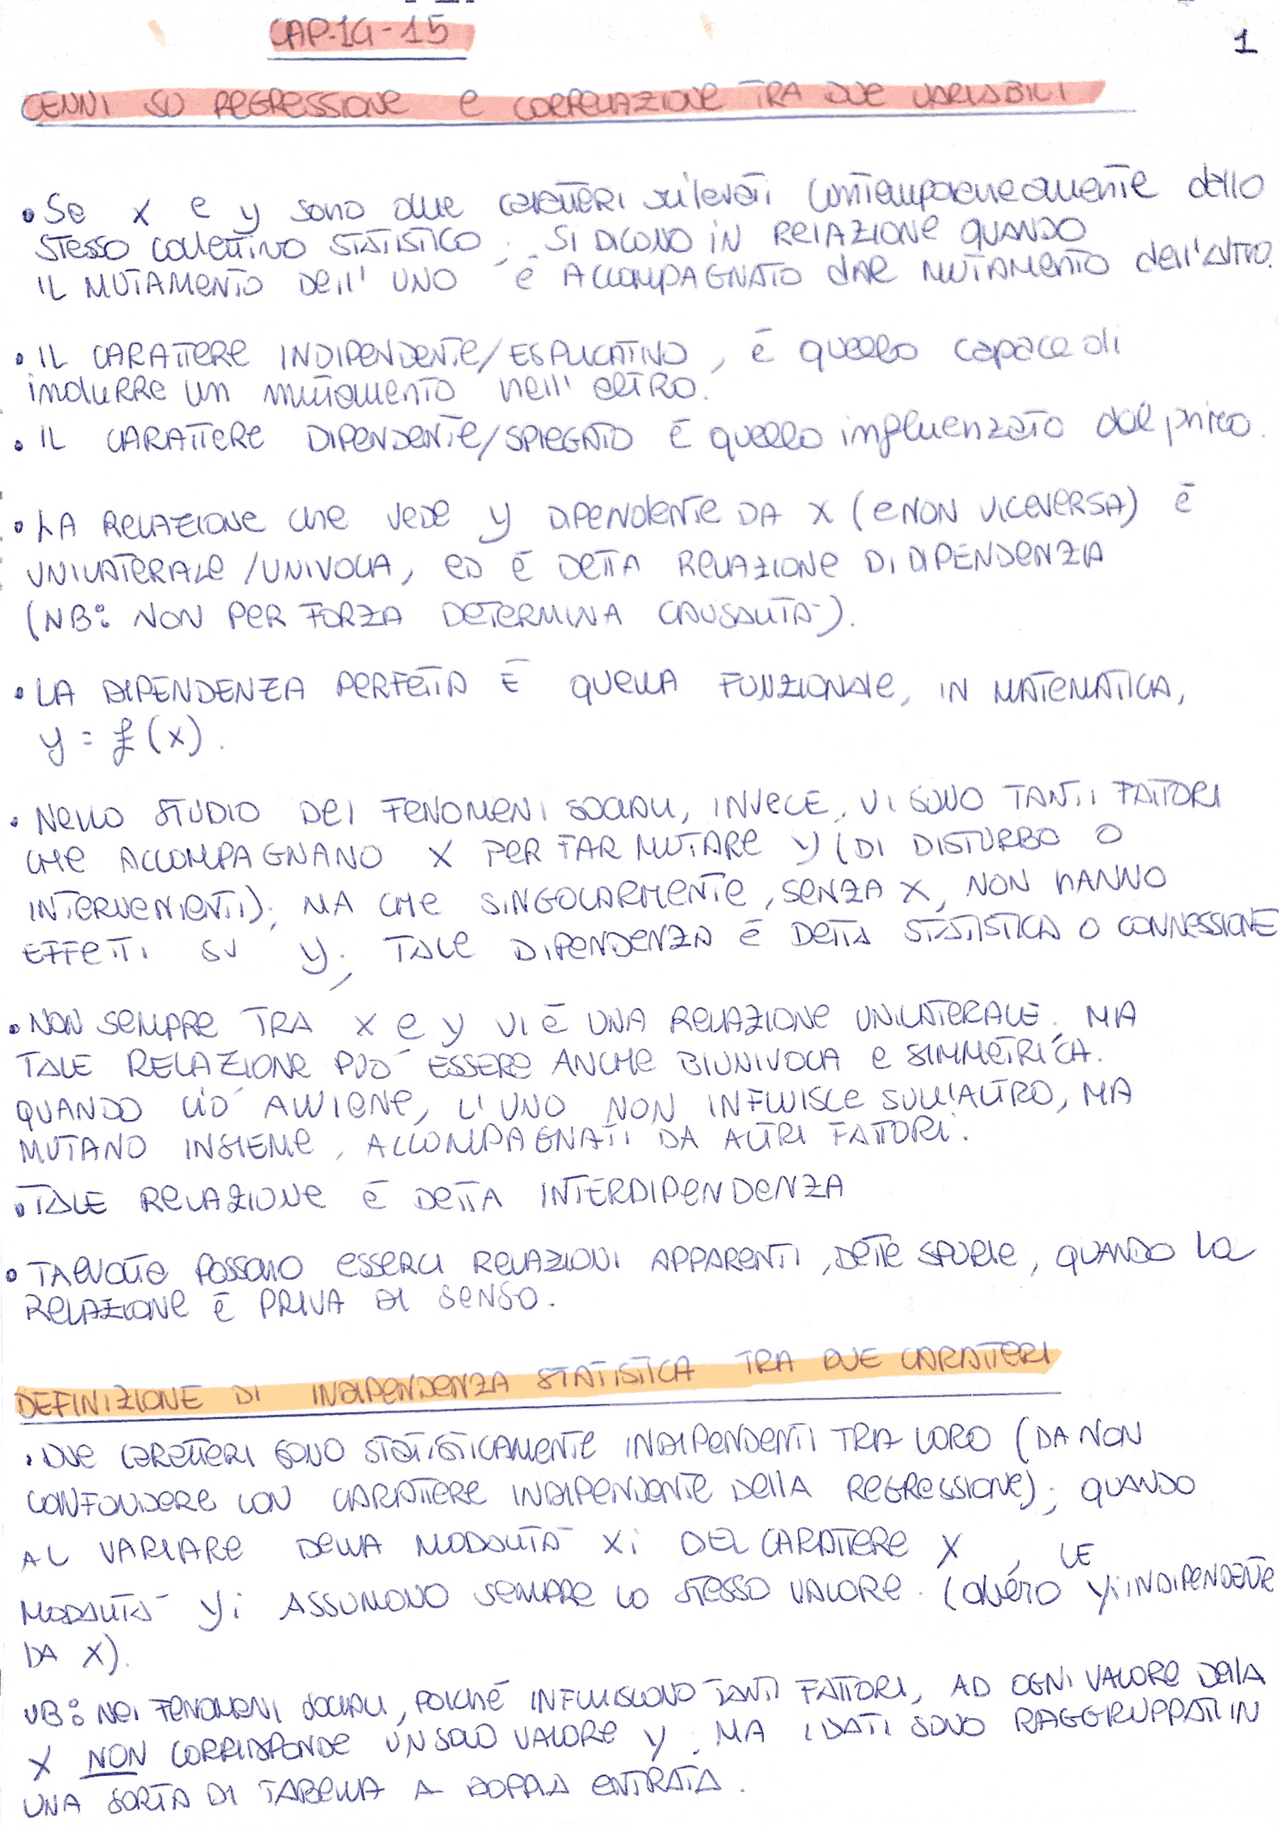 CAP. 14-15
1
CENNI SU REGRESSIONE E CORRELAZIONE TRA DUE VARIABILI
• Se x e y sono due caratteri rilevati contemporaneamente dallo
stesso collettivo statistico, si dicono in relazione quando
il mutamento dell'uno è accompagnato dal mutamento dell'altro.
• Il carattere indipendente/esplicativo, è quello capace di
indurre un mutamento nell'altro.
• Il carattere dipendente/spiegato è quello influenzato dal primo.
• La relazione che vede y dipendente da x (e non viceversa) è
unilaterale/univoca, ed è detta relazione di dipendenza
(NB: non per forza determina causalità).
• La dipendenza perfetta è quella funzionale, in matematica,
y = f(x).
• Nello studio dei fenomeni sociali, invece, vi sono tanti fattori
che accompagnano x per far mutare y (di disturbo o
intervenienti), ma che singolarmente, senza x, non hanno
effetti su y, tale dipendenza è detta statistica o connessione
• Non sempre tra x e y vi è una relazione unilaterale, ma
tale relazione può essere anche biunivoca e simmetrica.
Quando ciò avviene, l'uno non influisce sull'altro, ma
mutano insieme, accompagnati da altri fattori.
• Tale relazione è detta interdipendenza
• Talvolta possono esserci relazioni apparenti, dette spurie, quando la
relazione è priva di senso.
DEFINIZIONE DI INDIPENDENZA STATISTICA TRA DUE CARATTERI
• Due caratteri sono statisticamente indipendenti tra loro (da non
confondere con carattere indipendente della regressione), quando
al variare della modalità xi del carattere x, le
modalità yi assumono sempre lo stesso valore. (ovvero yi indipendente
da x).
NB: nei fenomeni sociali, poiché influiscono tanti fattori, ad ogni valore della
x NON corrisponde un solo valore y, ma i dati sono raggruppati in
una sorta di tabella a doppia entrata.